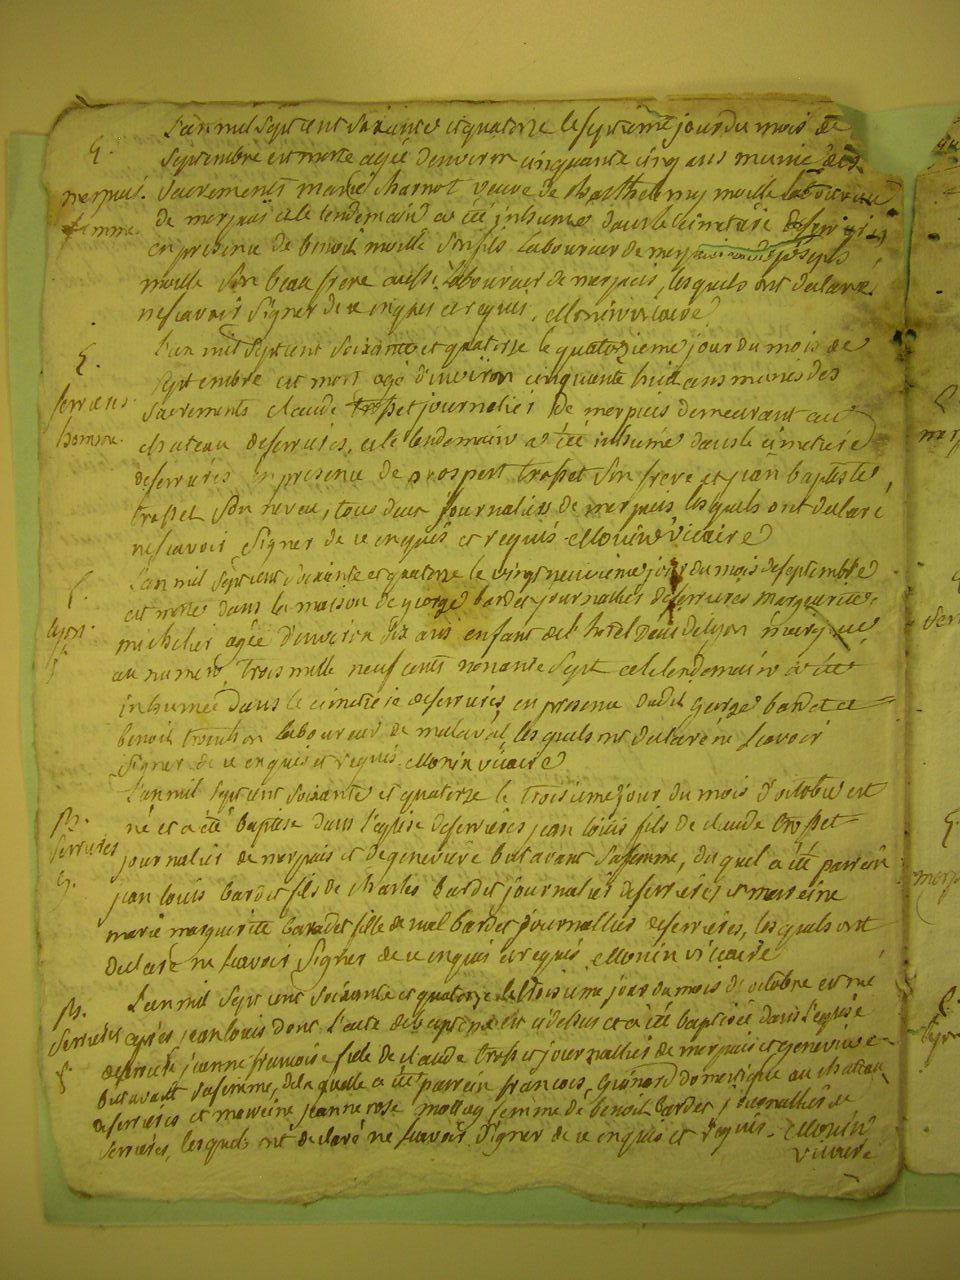 L'an mil sept cent soixante et quatorze le septieme jour du mois de
S.
Septembre est morte agée d'environ cinquante cinq ans munie des
merpuis.
Sacrements marie charnot veuve de Barthelemy moille laboureur
femme
de merpuis et le lendemain a été inhumée dans le cimetiere de serrieres
en presence de benoit moille son fils laboureur de merpuis et de joseph
moille son beau frere aussi laboureur de merpuis, lesquels ont declaré
ne scavoir signer de ce enquis et requis. Monin vicaire
L'an mil sept cent soixante et quatorze le quatorzieme jour du mois de
S.
Septembre est mort agé d'environ cinquante huit ans munis des
serrieres
Sacrements claude trosset journalier de merpuis demeurant au
homme.
chateau de serrieres, et le lendemain a été inhumé dans le cimetiere
de serrieres en presence de prospert trosset son frere et jean baptiste
trosset son neveu, tous deux journaliers de merpuis lesquels ont declaré
ne scavoir signer de ce enquis et requis Monin vicaire
L'an mil sept cent soixante et quatorze le vingt neuvieme jour du mois de septembre
S.
est morte dans la maison de george bardet journallier de serrieres marguerite
michelier agée d'environ dix ans enfant de l'hotel Dieu de lyon marquée
au numero trois mille neuf cents nonante sept et le lendemain a été
inhumée dans le cimetiere de serrieres en presence dudit george bardet et
benoit laboureur de malaval lesquels ont declaré ne scavoir
signer de ce enquis et requis Monin vicaire
L'an mil sept cent soixante et quatorze le troisieme jour du mois d'octobre est
B.
né et a été baptisé dans l'eglise de serrieres jean louis fils de claude trosset
serrieres
journalier de merpuis et de genevieve butavant sa femme, duquel a été parrein
G.
jean louis bardet fils de charles bardet journalier de serrieres et marreine
marie marguerite bardet fille de bardet journallier de serrieres, lesquels ont
declaré ne scavoir signer de ce enquis et requis Monin vicaire
L'an mil sept cent soixante et quatorze le troisieme jour du mois d'octobre est né
B.
serrieres
après jean louis dont l'acte de bapteme est cidessus et a été baptisée dans l'eglise
de serrieres jeanne francoise fille de claude trosset journallier de merpuis et genevieve
butavant sa femme, de laquelle a été parrein francois domestique au chateau
de serrieres et marreine jeanne rose femme de benoit bardet journallier de
serrieres, lesquels ont declaré ne scavoir signer de ce enquis et requis. Monin
vicaire